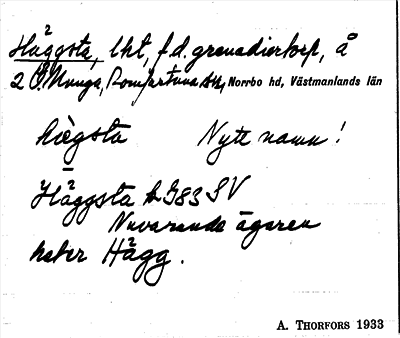 Häggsta, lht, f.d. grenadiertorp, å
2 Ö. Munga, Romfartuna sn, Norrbo hd, Västmanlands län
hägsta Nytt namn!
Häggsta k 783 SV
Nuvarande ägaren
heter Hägg.
A. THORFORS 1933